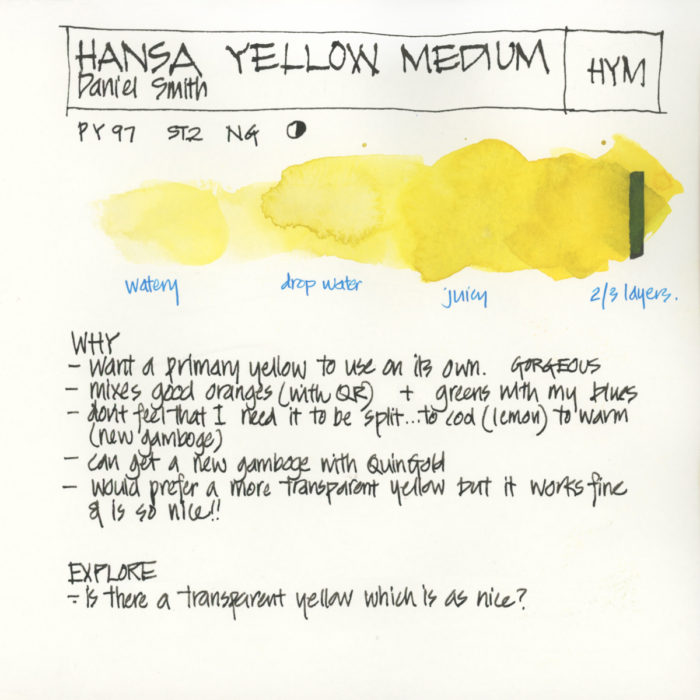 HANSA YELLOW MEDIUM
HYM
Daniel Smith
PY97 ST2 NG
watery
drop water
juicy
2/3 layers.
WHY
- want a primary yellow to use on its own. GORGEOUS
- mixes good oranges (with QR) + greens with my blues
- dont feel that I need it to be split...to cool (lemon) to warm
(new gamboge)
- can get a new gamboge with QuinGold
- would prefer a more transparent yellow but it works fine
& is so nice!!
EXPLORE
- is there a transparent yellow which is as nice?